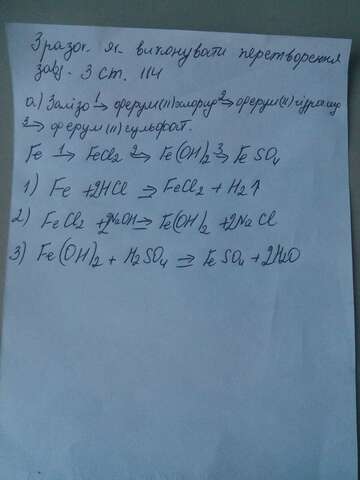 Зразок як виконувати перетворення
завд. 3 ст. 114
а) Залізо 1→ ферум(II)хлорид 2→ ферум(II)гідроксид
3→ ферум(II)сульфат.
Fe 1→ FeCl2 2→ Fe(OH)2 3→ FeSO4
1) Fe + 2HCl → FeCl2 + H2↑
2) FeCl2 + 2NaOH → Fe(OH)2 + 2NaCl
3) Fe(OH)2 + H2SO4 → FeSO4 + 2H2O